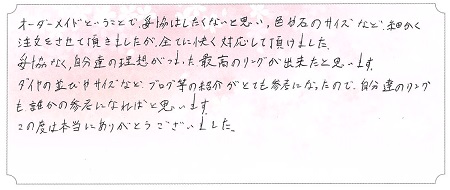 オーダーメイドということで、妥協はしたくないと思い、色や石のサイズなど、細かく
注文をさせて頂きましたが、全てに快く対応して頂けました。
妥協なく、自分達の理想がつまった最高のリングが出来たと思います。
ダイヤの並びやサイズなど、ブログ等の紹介がとても参考になったので、自分達のリング
も誰かの参考になればと思います。
この度は本当にありがとうございました。